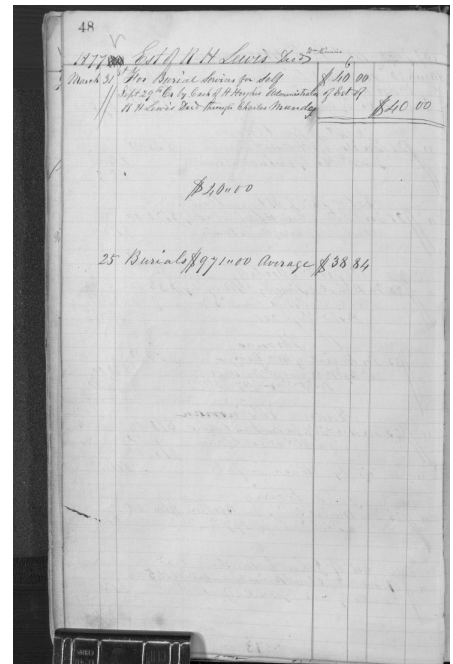 48
1877 Est of R H Lewis Decd
March 31st For Burial Servies for Self $40 00
Sept 29th Cr by Cash of H Hughes Administrator of Est of
R H Lewis Decd through Charles Munday $40 00
$40"00
25 Burials $971"00 Average $38 84